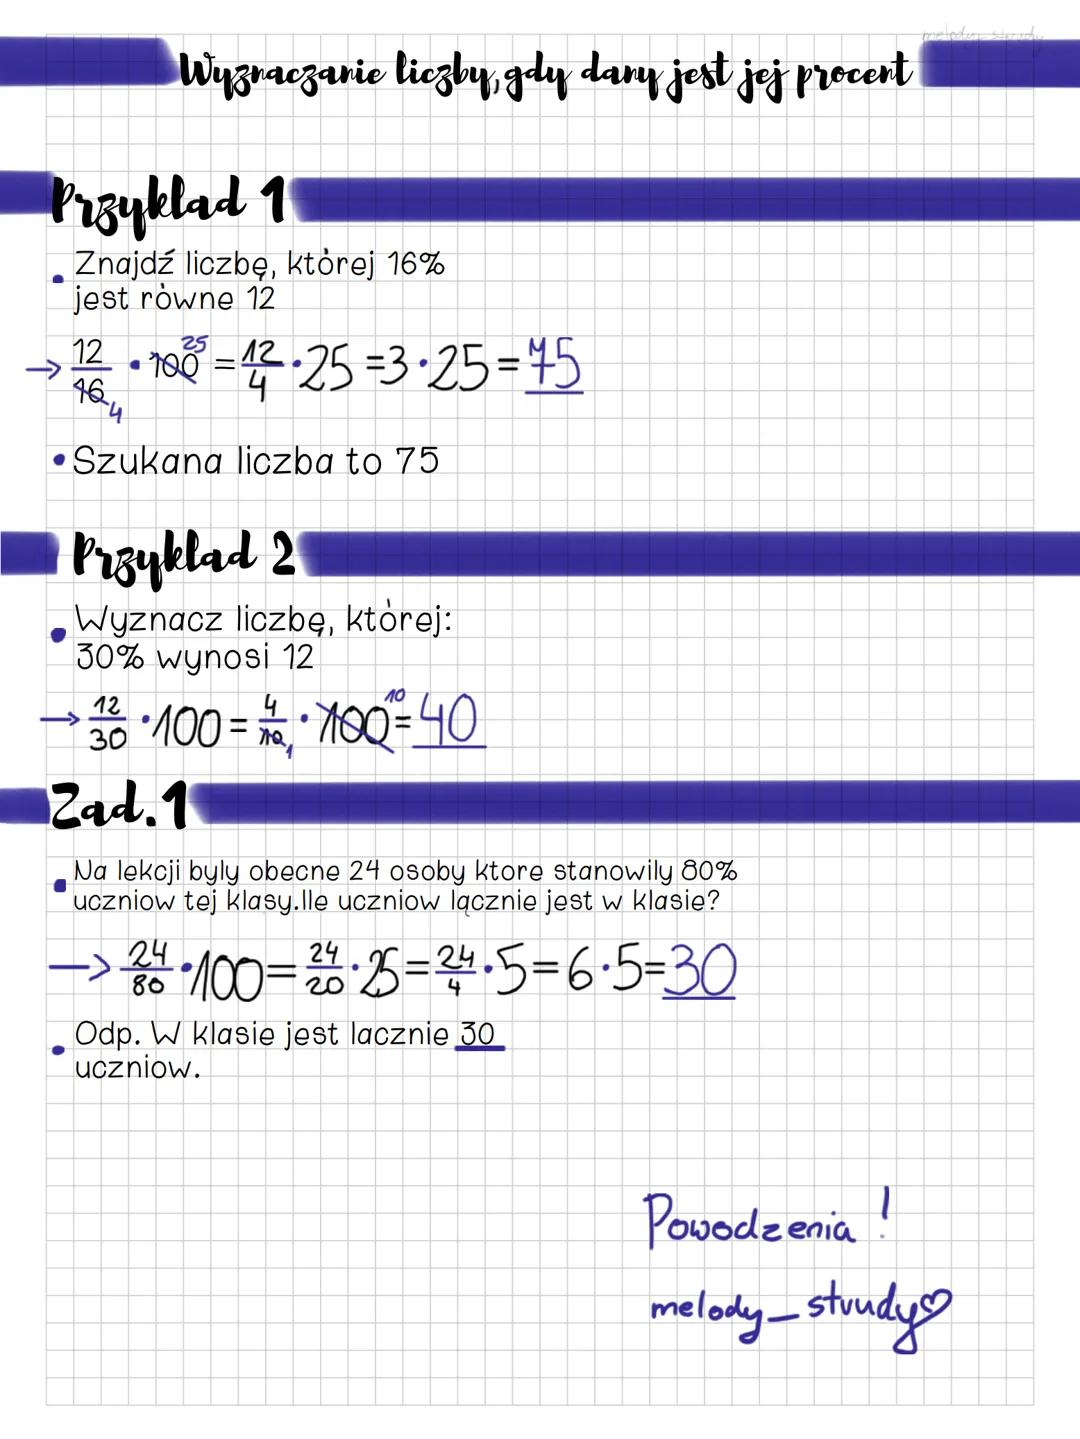 melody_stuudy
Wyznaczanie liczby, gdy dany jest jej procent
Przyklad 1
• Znajdź liczbę, której 16%
jest równe 12
→ 12/16 4 • 100 25 = 12/4 • 25 = 3 • 25 = 75
• Szukana liczba to 75
Przyklad 2
• Wyznacz liczbę, której:
30% wynosi 12
→ 12/30 • 100 = 4/10 1 • 100 10 = 40
Zad.1
• Na lekcji byly obecne 24 osoby ktore stanowily 80%
uczniow tej klasy.Ile uczniow lącznie jest w klasie?
→ 24/80 • 100 = 24/20 • 25 = 24/4 • 5 = 6 • 5 = 30
• Odp. W klasie jest lacznie 30
uczniow.
Powodzenia !
melody_stuudy♡